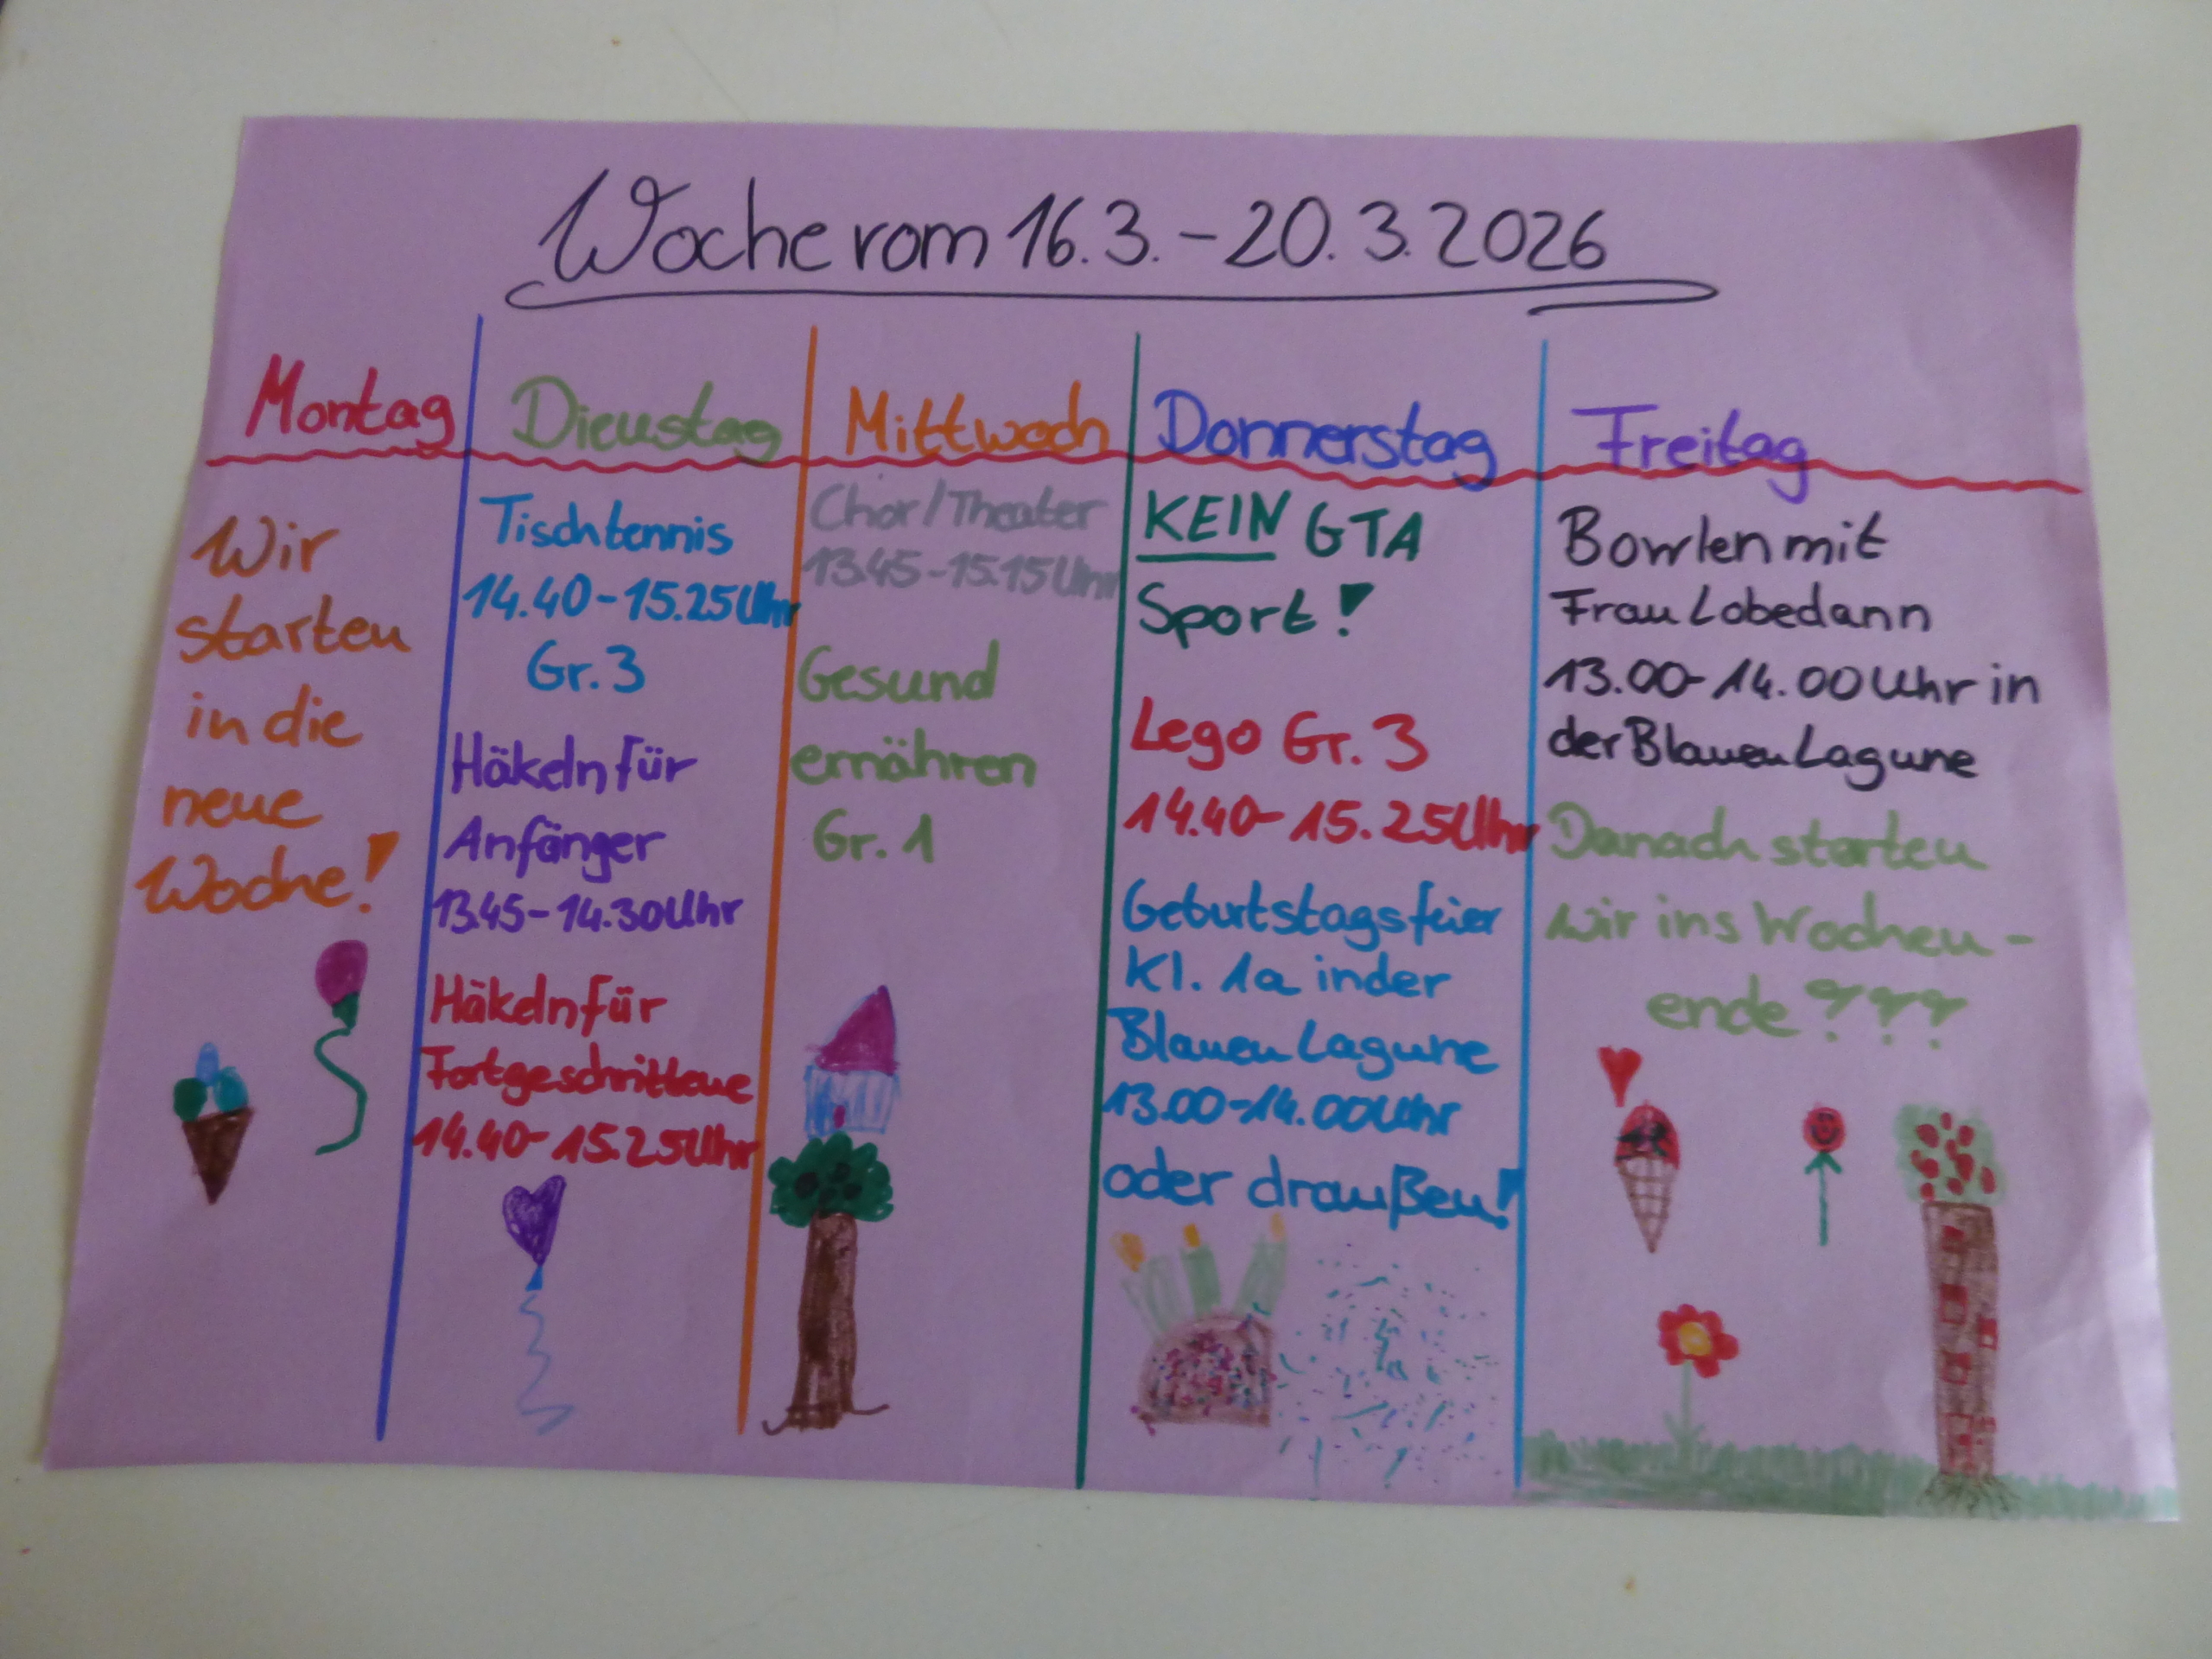 Woche vom 16.3. - 20.3.2026
Montag
Wir
starten
in die
neue
Woche!
Dienstag
Tischtennis
14.40-15.25 Uhr
Gr. 3
Häkeln für
Anfänger
13.45-14.30 Uhr
Häkeln für
Fortgeschrittene
14.40-15.25 Uhr
Mittwoch
Chor/Theater
13.45-15.15 Uhr
Gesund
ernähren
Gr. 1
Donnerstag
KEIN GTA
Sport!
Lego Gr. 3
14.40-15.25 Uhr
Geburtstagsfeier
Kl. 1a in der
Blauen Lagune
13.00-14.00 Uhr
oder draußen!
Freitag
Bowlen mit
Frau Lobedann
13.00-14.00 Uhr in
der Blauen Lagune
Danach starten
wir ins Wochen-
ende???